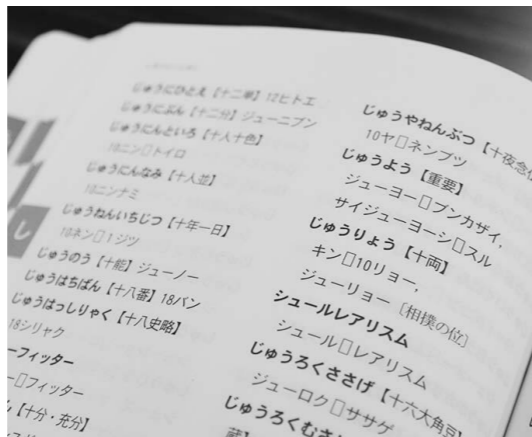 じゅうにひとえ【十二単】12ヒトエ
じゅうにぶん【十二分】ジューニブン
じゅうにんといろ【十人十色】
10ニン□トイロ
じゅうにんなみ【十人並】
10ニンナミ
じゅうねんいちじつ【十年一日】
10ネン□1ジツ
じゅうのう【十能】ジューノー
じゅうはちばん【十八番】18バン
じゅうはっしりゃく【十八史略】
18シリャク
ーフィッター
ー□フィッター
【十分・充分】
し
じゅうやねんぶつ【十夜念仏
10ヤ□ネンブツ
じゅうよう【重要】
ジューヨー□ブンカザイ,
サイジューヨーシ□スル
じゅうりょう【十両】
キン□10リョー,
ジューリョー〔相撲の位〕
シュールレアリスム
シュール□レアリスム
じゅうろくささげ【十六大角豆】
ジューロク□ササゲ
じゅうろくむさ
蔵】